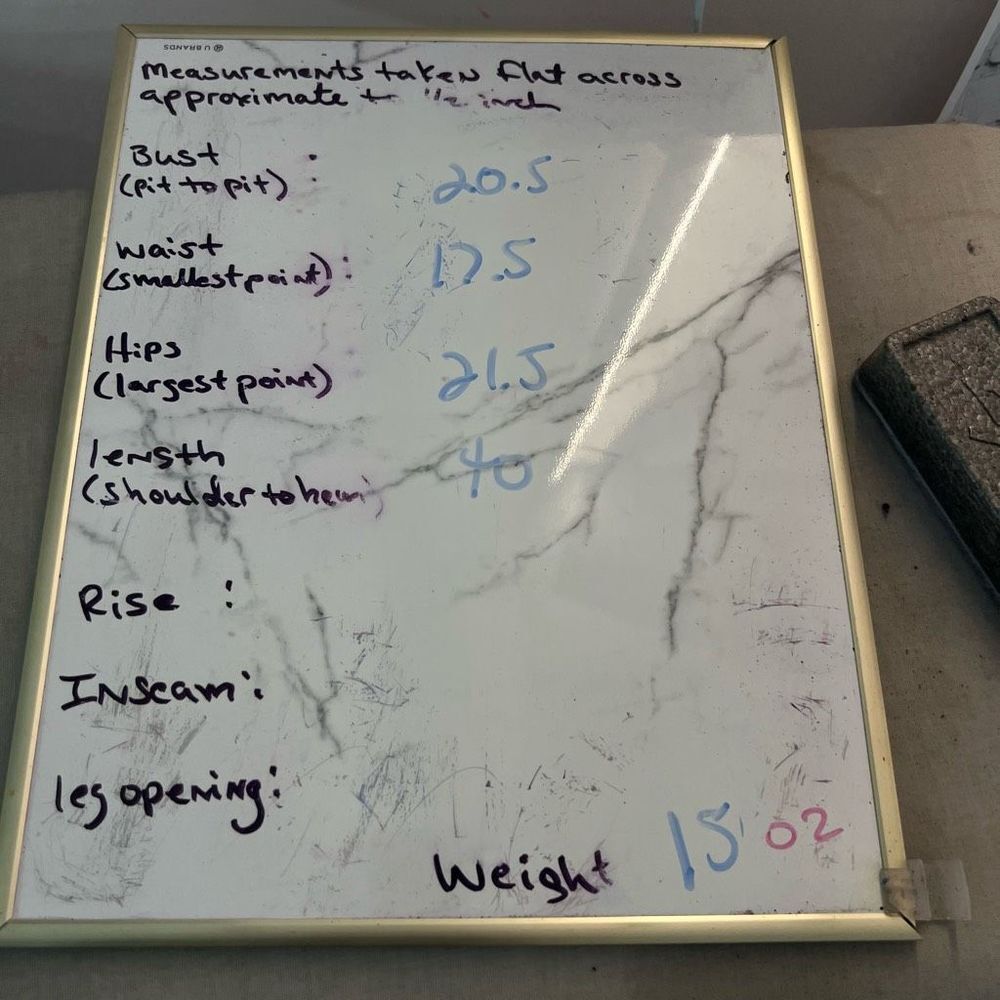 U BRANDS
Measurements taken flat across
approximate to 1/2 inch
Bust :
(pit to pit) 20.5
waist
(smallest point): 17.5
Hips
(largest point) 21.5
length
(shoulder to hem) 40
Rise :
Inseam:
leg opening:
Weight 15 oz